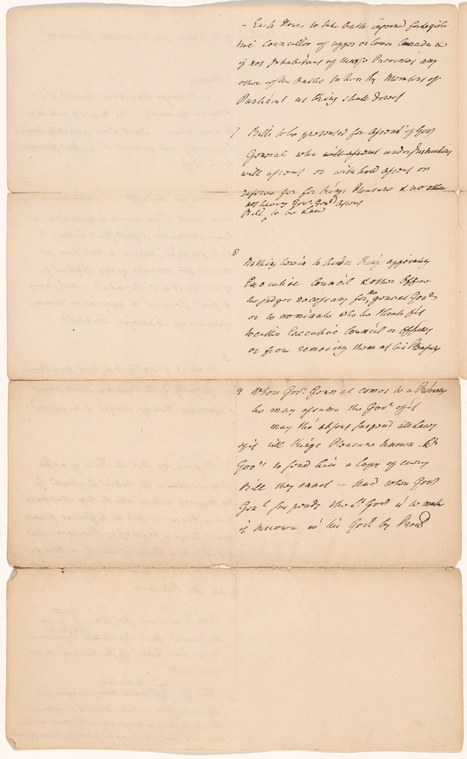 - Each Person to take Oath imposed for Legisla
tive Councillor of upper or lower Canada &
if not Inhabitants of these Provinces any
other after Oaths taken by Members of
Parliamt as King shall direct
7 Bills to be presented for assent of Govr
General who will assent under Instructions
will assent or withhold assent or
reserve for for Kings Pleasure & no other
not having Govr Genl assent
Bill to be Law
8
Nothing herein to hinder King appointing
Executive Council & other Officers
or Judges necessary for the general Govt
or to nominate who he thinks fit
Executive Council or Officers
or from removing them at his Pleasure
9 When Govr General comes to a Province
he may assume the Govt of it
may tho' absent suspend all Laws
of it till Kings Pleasure known - Lt
Govrs to send him a Copy of every
Bill they enact - And when Govr
Genl the Lt Govr is to make
it known in his Govt by Procl